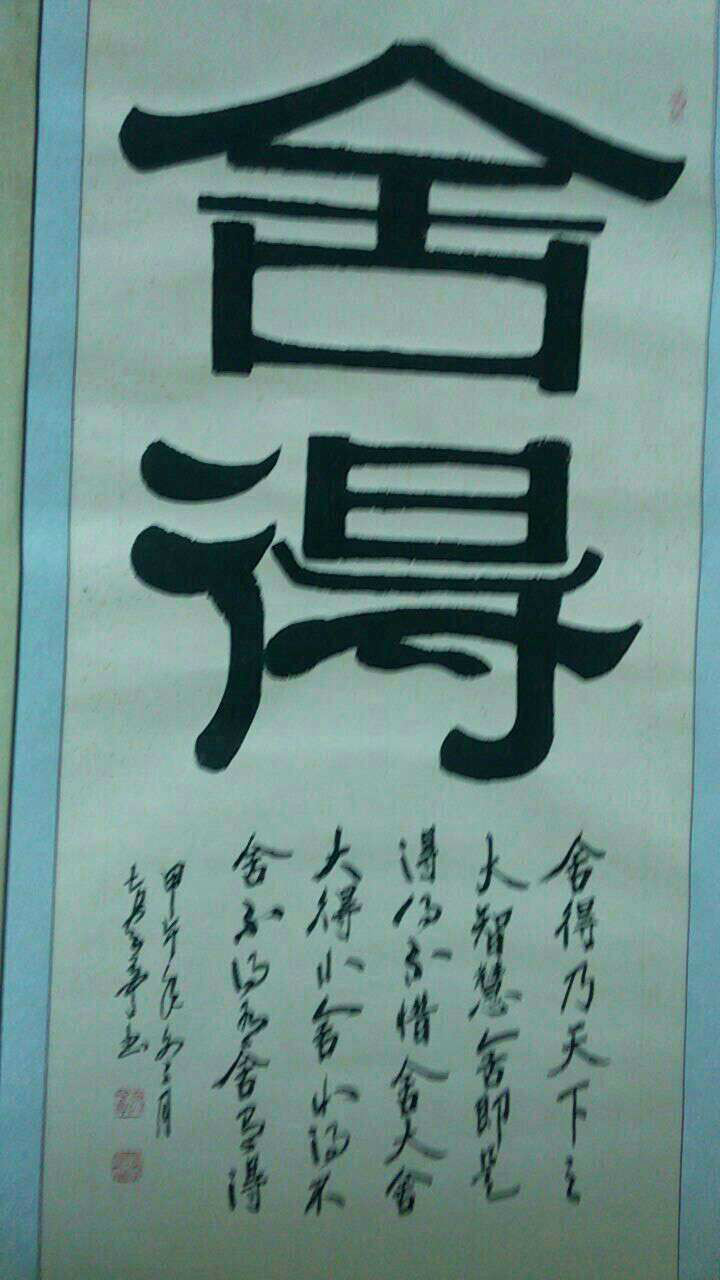 舍得
舍得乃天下之
大智慧舍即是
得得不惜舍大舍
大得小舍小得不
舍不得
舍
得
甲午年
書